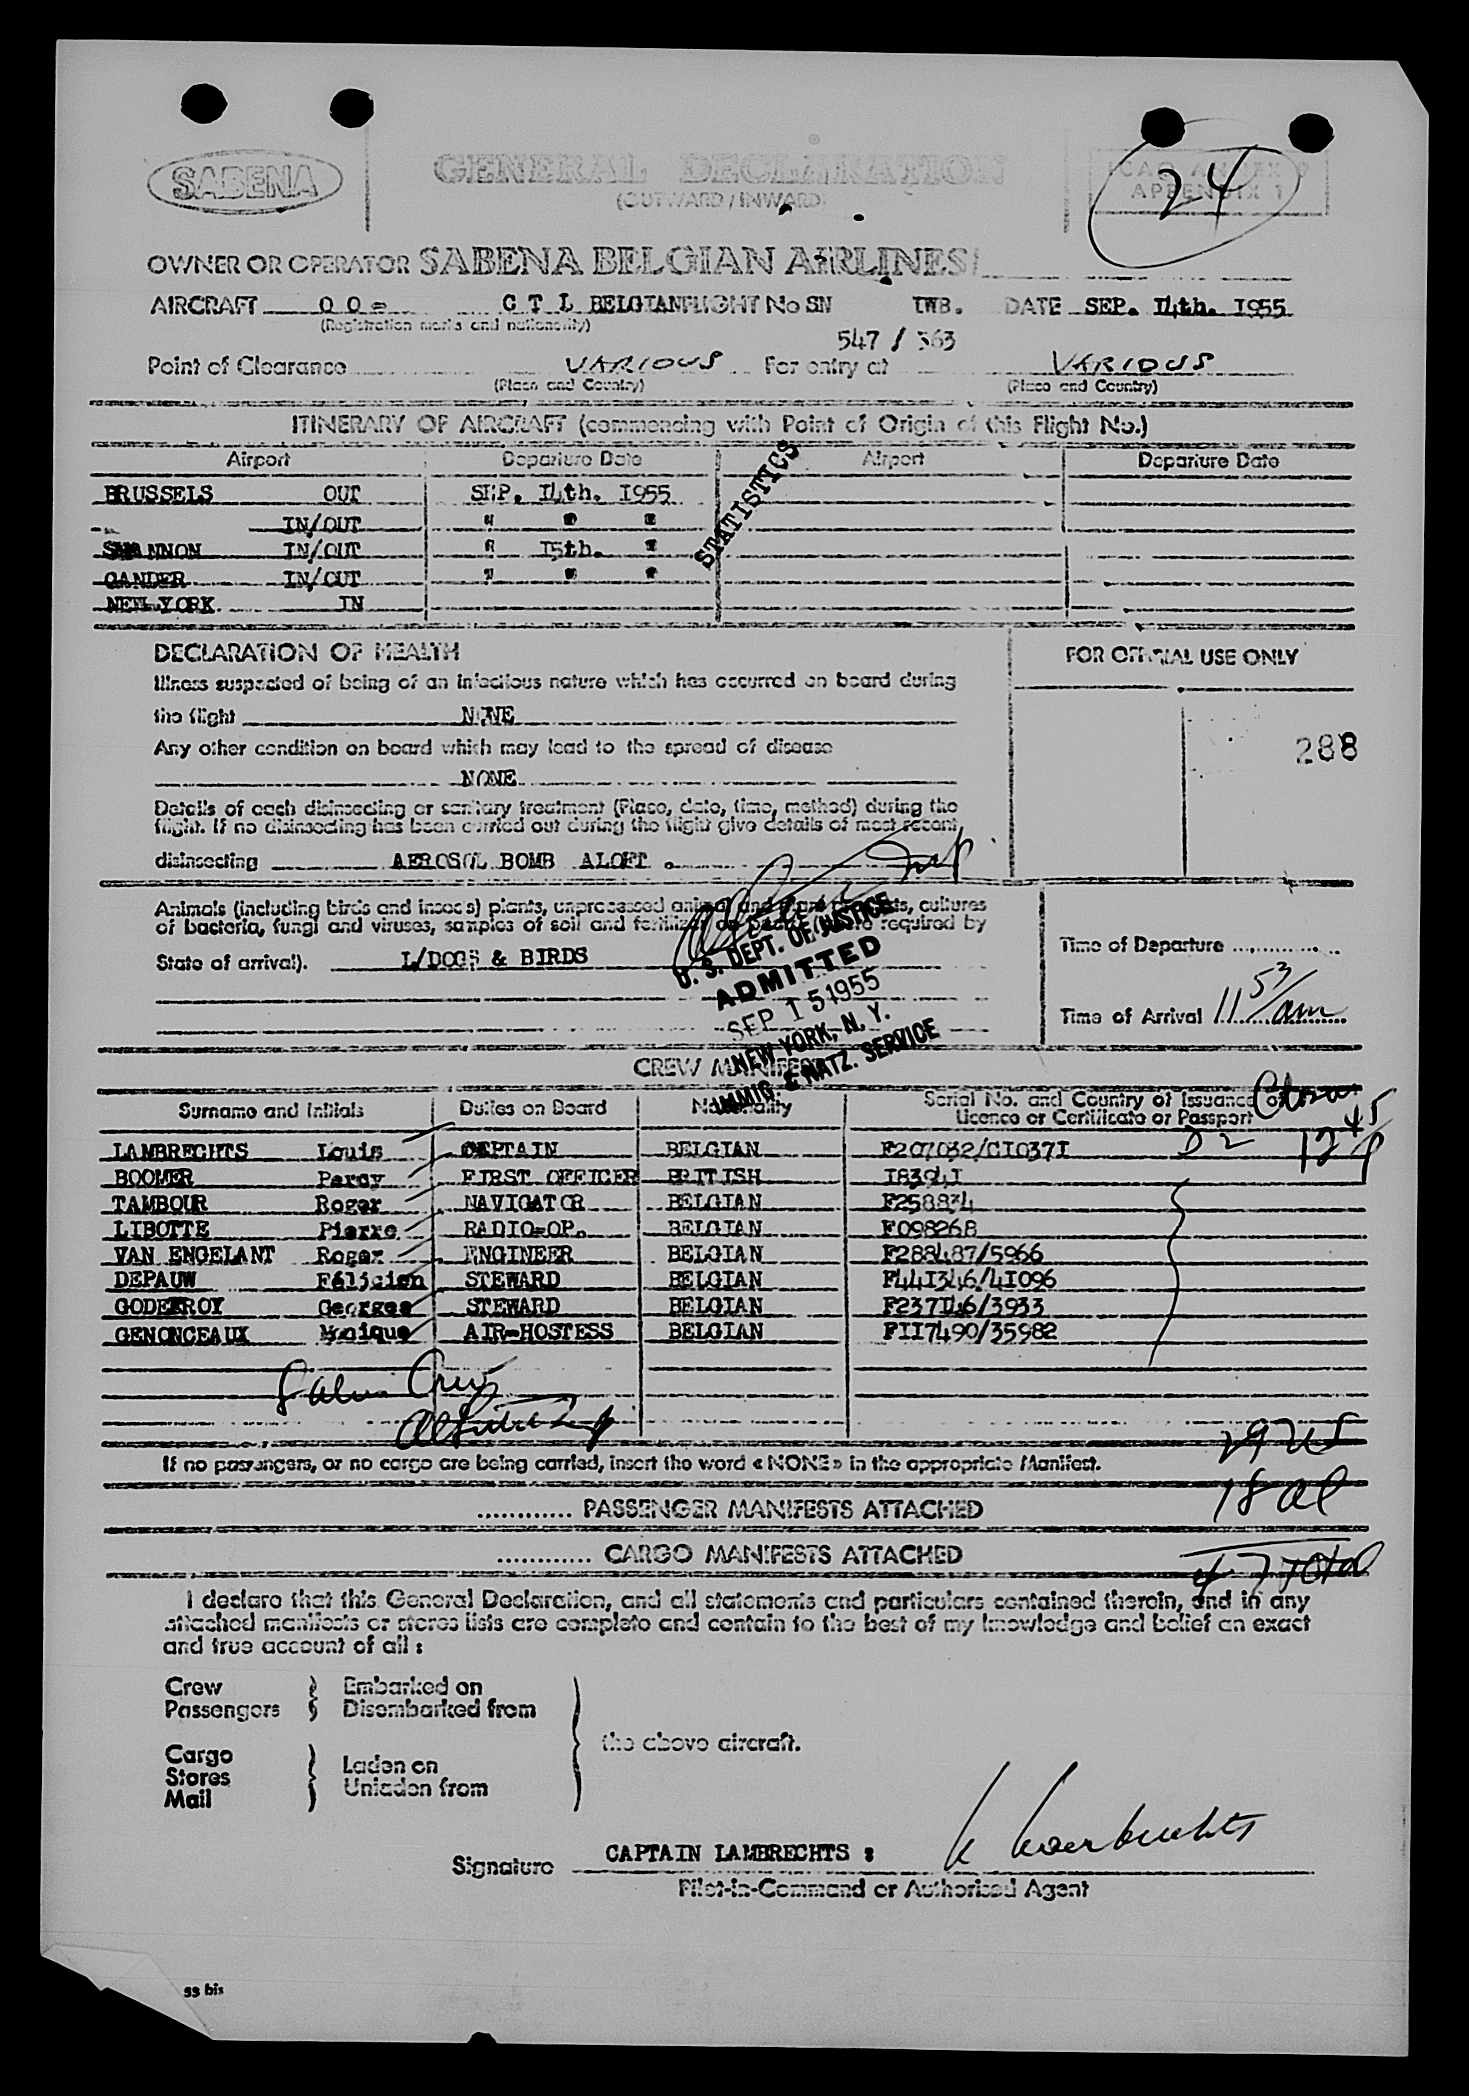 SABENA
GENERAL DECLARATION
(OUTWARD / INWARD)
ICAO ANNEX 9
APPENDIX 1
24
OWNER OR OPERATOR SABENA BELGIAN AIRLINES
AIRCRAFT O O - C T L BELGIAN FLIGHT No SN DATE SEP. I4th. I955
(Registration marks and nationality)
547 / 363
Point of Clearance VARIOUS For entry at VARIOUS
(Place and Country) (Place and Country)
ITINERARY OF AIRCRAFT (commencing with Point of Origin of this Flight No.)
Airport Departure Date Airport Departure Date
BRUSSELS OUT SEP. I4th. I955
IN/OUT " " "
SHANNON IN/OUT " I5th. "
GANDER IN/OUT " " "
NEW-YORK IN
STATISTICS
DECLARATION OF HEALTH
FOR OFFICIAL USE ONLY
Illness suspected of being of an infectious nature which has occurred on board during
the flight NONE
288
Any other condition on board which may lead to the spread of disease
NONE
Details of each disinsecting or sanitary treatment (Place, date, time, method) during the
flight. If no disinsecting has been carried out during the flight give details of most recent
disinsecting AEROSOL BOMB ALOFT .
Animals (including birds and insects) plants, unprocessed animal and plant products, cultures
of bacteria, fungi and viruses, samples of soil and fertilizer on board (where required by
State of arrival). I/DOGS & BIRDS
U. S. DEPT. OF JUSTICE
ADMITTED
SEP 1 5 1955
NEW YORK, N. Y.
IMMIG. & NATZ. SERVICE
Time of Departure
Time of Arrival 11 53/am
CREW MANIFEST
Surname and Initials Duties on Board Nationality Serial No. and Country of Issuance of
Licence or Certificate or Passport
LAMBRECHTS Louis CAPTAIN BELGIAN F207032/CI037I D2 12 45/p
BOOMER Percy FIRST OFFICER BRITISH I8394I
TAMBOUR Roger NAVIGATOR BELGIAN F258834
LIBOTTE Pierre RADIO-OP. BELGIAN F098268
VAN ENGELANT Roger ENGINEER BELGIAN F288487/5966
DEPAUW Félicien STEWARD BELGIAN F44I346/4I096
GODEFROY Georges STEWARD BELGIAN F237I46/3933
GENONCEAUX Monique AIR-HOSTESS BELGIAN FII7490/35982
Crew
29 US
If no passengers, or no cargo are being carried, insert the word « NONE » in the appropriate Manifest.
18 al
............ PASSENGER MANIFESTS ATTACHED
............ CARGO MANIFESTS ATTACHED
47 total
I declare that this General Declaration, and all statements and particulars contained therein, and in any
attached manifests or stores lists are complete and contain to the best of my knowledge and belief an exact
and true account of all :
Crew Embarked on
Passengers Disembarked from
the above aircraft.
Cargo Laden on
Stores Unladen from
Mail
CAPTAIN LAMBRECHTS : L Lambrechts
Signature
Pilot-in-Command or Authorised Agent
ss bis